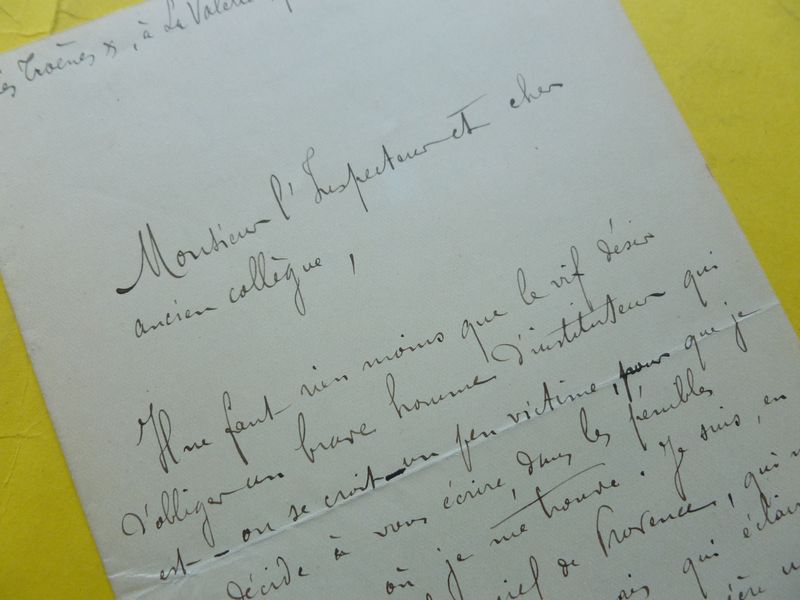 Troënes », à La Valette
Monsieur l'Inspecteur et cher
ancien collègue,
Il ne faut rien moins que le vif désir
d'obliger un brave homme d'instituteur qui
est – ou se croit – un peu victime, pour que je
décide à vous écrire, dans les pénibles
où je me trouve. Je suis, en
de Provence, qui
qui éclair